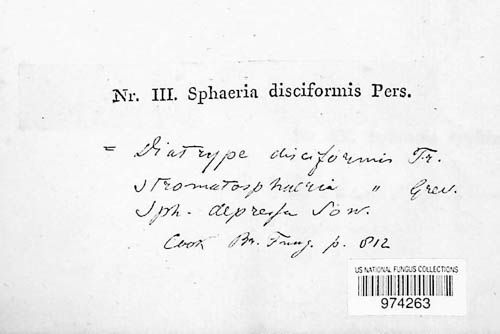 Nr. III. Sphaeria disciformis Pers.
= Diatrype disciformis Fr.
Stromatosphaeria " Grev.
Sph. depressa Sow.
Cook Br. Fung. p. 812
US NATIONAL FUNGUS COLLECTIONS
974263